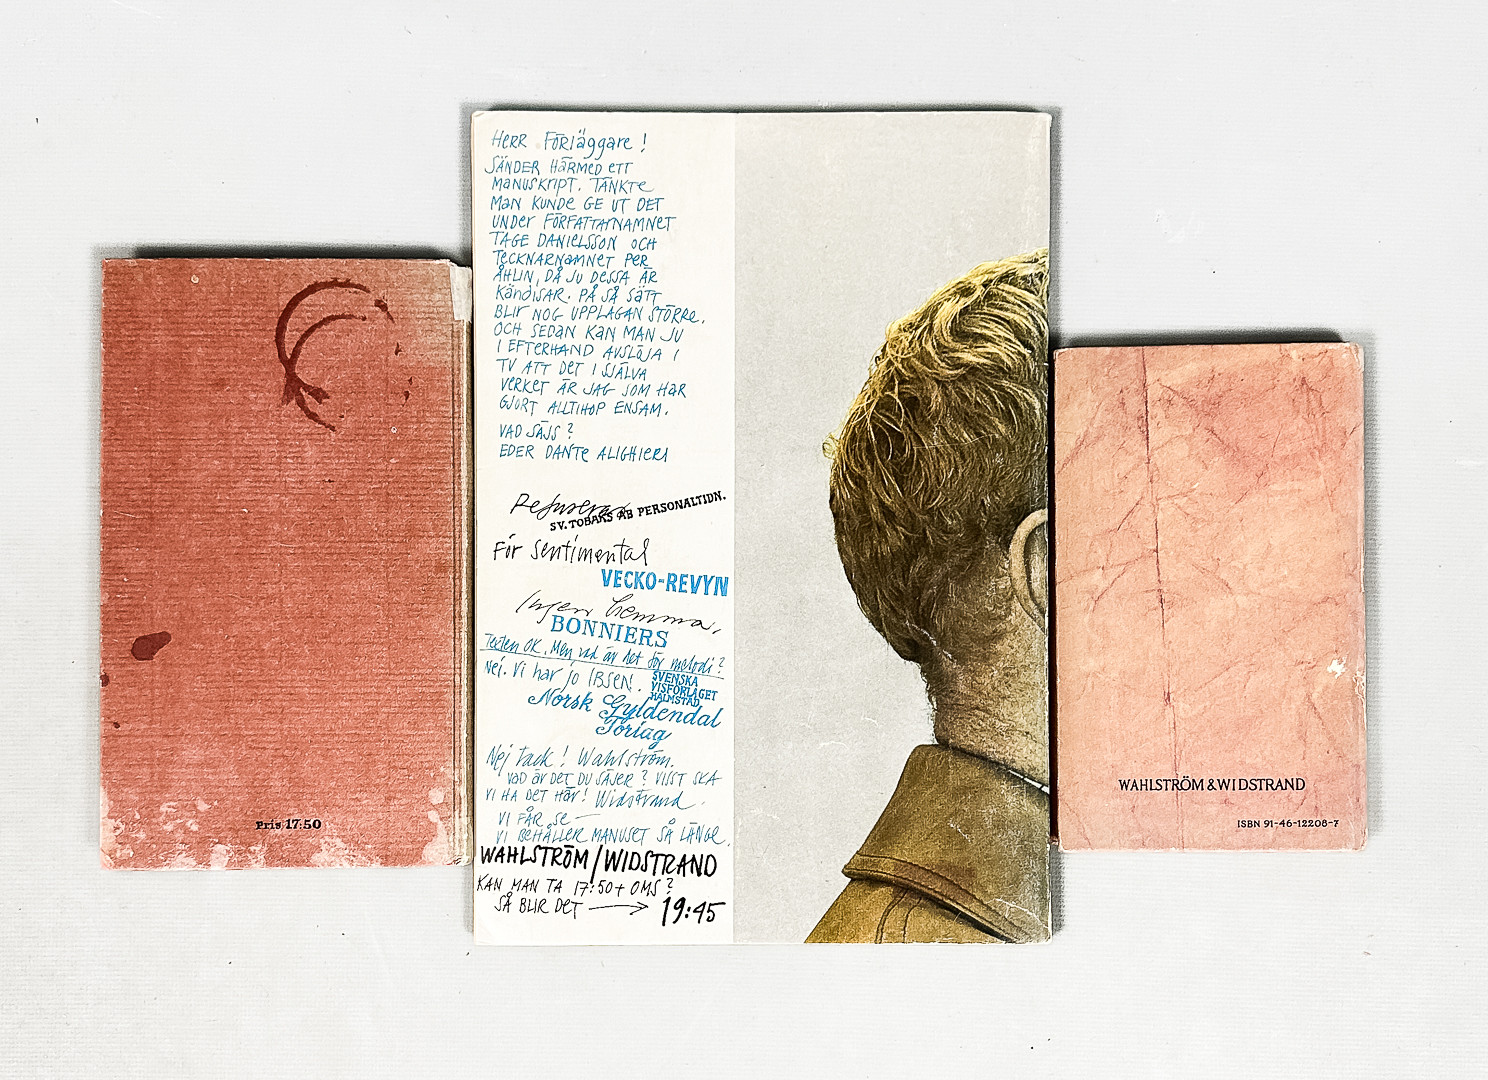 Pris 17:50
HERR FÖRLÄGGARE!
SÄNDER HÄRMED ETT
MANUSKRIPT. TÄNKTE
MAN KUNDE GE UT DET
UNDER FÖRFATTARNAMNET
TAGE DANIELSSON OCH
TECKNARNAMNET PER
ÅHLIN, DÅ JU DESSA ÄR
KÄNDISAR. PÅ SÅ SÄTT
BLIR NOG UPPLAGAN STÖRRE.
OCH SEDAN KAN MAN JU
I EFTERHAND AVSLÖJA I
TV ATT DET I SJÄLVA
VERKET ÄR JAG SOM HAR
GJORT ALLTIHOP ENSAM.
VAD SÄJS?
EDER DANTE ALIGHIERI
Refuseras
SV. TOBAKS AB PERSONALTIDN.
För sentimental
VECKO-REVYN
Ingen hemma.
BONNIERS
Texten OK. Men vad är det för melodi?
SVENSKA
VISFÖRLAGET
HALMSTAD
Nej. Vi har jo IBSEN.
Norsk Gyldendal
Forlag
Nej tack! Wahlström.
VAD ÄR DET DU SÄJER? VISST SKA
VI HA DET HÄR! Widstrand.
VI FÅR SE—
VI BEHÅLLER MANUSET SÅ LÄNGE.
WAHLSTRÖM/WIDSTRAND
KAN MAN TA 17:50+OMS?
SÅ BLIR DET → 19:45
WAHLSTRÖM & WIDSTRAND
ISBN 91-46-12208-7